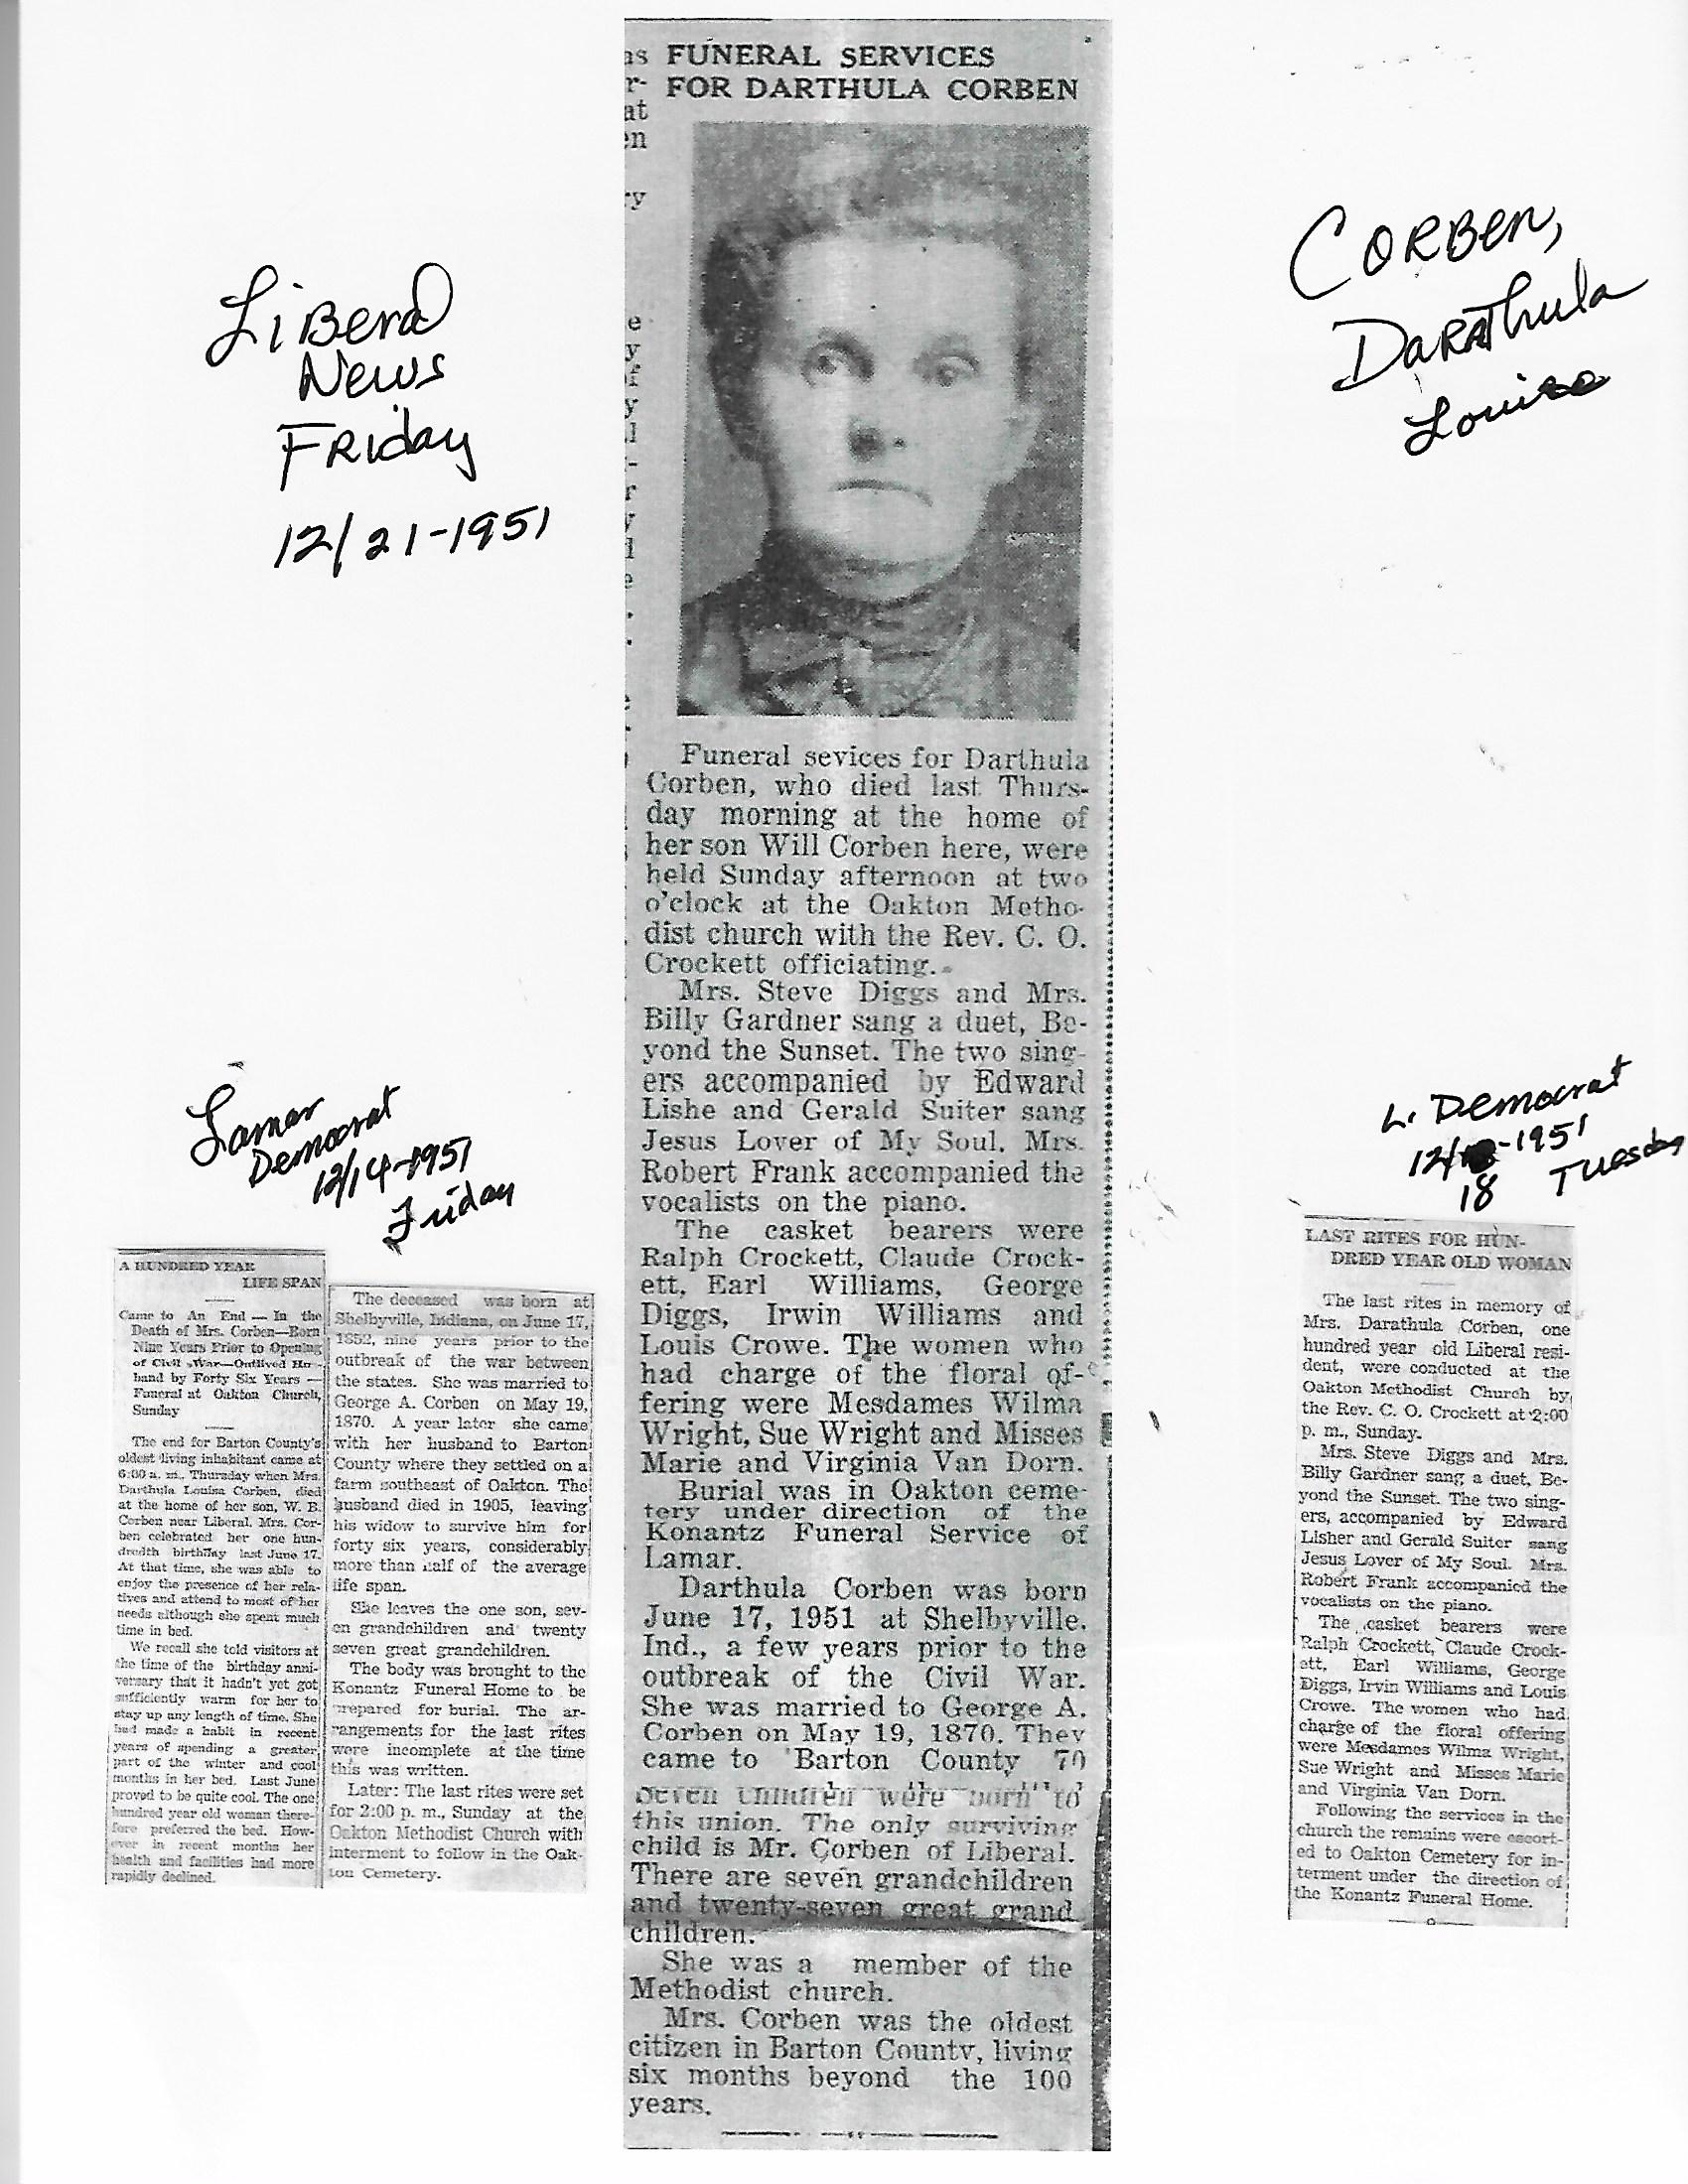 Liberal
News
Friday
12/21-1951
CORBEN,
DARAThula
Louise
as
r-
at
en
ry
e
y
of
y
l
-
r
y
l
e
.
FUNERAL SERVICES
FOR DARTHULA CORBEN
Funeral sevices for Darthula
Corben, who died last Thurs-
day morning at the home of
her son Will Corben here, were
held Sunday afternoon at two
o'clock at the Oakton Metho-
dist church with the Rev. C. O.
Crockett officiating.
Mrs. Steve Diggs and Mrs.
Billy Gardner sang a duet, Be-
yond the Sunset. The two sing-
ers accompanied by Edward
Lishe and Gerald Suiter sang
Jesus Lover of My Soul. Mrs.
Robert Frank accompanied the
vocalists on the piano.
The casket bearers were
Ralph Crockett, Claude Crock-
ett, Earl Williams, George
Diggs, Irwin Williams and
Louis Crowe. The women who
had charge of the floral of-
fering were Mesdames Wilma
Wright, Sue Wright and Misses
Marie and Virginia Van Dorn.
Burial was in Oakton ceme-
tery under direction of the
Konantz Funeral Service of
Lamar.
Darthula Corben was born
June 17, 1951 at Shelbyville.
Ind., a few years prior to the
outbreak of the Civil War.
She was married to George A.
Corben on May 19, 1870. They
came to Barton County 70
Seven children were born to
this union. The only surviving
child is Mr. Corben of Liberal.
There are seven grandchildren
and twenty-seven great grand
children.
She was a member of the
Methodist church.
Mrs. Corben was the oldest
citizen in Barton County, living
six months beyond the 100
years.
Lamar
Democrat
12/14-1951
Friday
A HUNDRED YEAR
LIFE SPAN
Came to An End — In the
Death of Mrs. Corben—Born
Nine Years Prior to Opening
of Civil War—Outlived Hu-
band by Forty Six Years —
Funeral at Oakton Church,
Sunday
The end for Barton County's
oldest living inhabitant came at
6:00 a. m., Thursday when Mrs.
Darthula Louisa Corben, died
at the home of her son, W. B.
Corben near Liberal. Mrs. Cor-
ben celebrated her one hun-
dredth birthday last June 17.
At that time, she was able to
enjoy the presence of her rela-
tives and attend to most of her
needs although she spent much
time in bed.
We recall she told visitors at
the time of the birthday anni-
versary that it hadn't yet got
sufficiently warm for her to
stay up any length of time. She
had made a habit in recent
years of spending a greater
part of the winter and cool
months in her bed. Last June
proved to be quite cool. The one
hundred year old woman there-
fore preferred the bed. How-
ever in recent months her
health and facilities had more
rapidly declined.
The deceased was born at
Shelbyville, Indiana, on June 17,
1852, nine years prior to the
outbreak of the war between
the states. She was married to
George A. Corben on May 19,
1870. A year later she came
with her husband to Barton
County where they settled on a
farm southeast of Oakton. The
husband died in 1905, leaving
his widow to survive him for
forty six years, considerably
more than half of the average
life span.
She leaves the one son, sev-
en grandchildren and twenty
seven great grandchildren.
The body was brought to the
Konantz Funeral Home to be
prepared for burial. The ar-
rangements for the last rites
were incomplete at the time
this was written.
Later: The last rites were set
for 2:00 p. m., Sunday at the
Oakton Methodist Church with
interment to follow in the Oak-
ton Cemetery.
L. Democrat
12/ -1951
18 Tuesday
LAST RITES FOR HUN-
DRED YEAR OLD WOMAN
The last rites in memory of
Mrs. Darathula Corben, one
hundred year old Liberal resi-
dent, were conducted at the
Oakton Methodist Church by
the Rev. C. O. Crockett at 2:00
p. m., Sunday.
Mrs. Steve Diggs and Mrs.
Billy Gardner sang a duet, Be-
yond the Sunset. The two sing-
ers, accompanied by Edward
Lisher and Gerald Suiter sang
Jesus Lover of My Soul. Mrs.
Robert Frank accompanied the
vocalists on the piano.
The casket bearers were
Ralph Crockett, Claude Crock-
ett, Earl Williams, George
Diggs, Irvin Williams and Louis
Crowe. The women who had
charge of the floral offering
were Mesdames Wilma Wright,
Sue Wright and Misses Marie
and Virginia Van Dorn.
Following the services in the
church the remains were escort-
ed to Oakton Cemetery for in-
terment under the direction of
the Konantz Funeral Home.